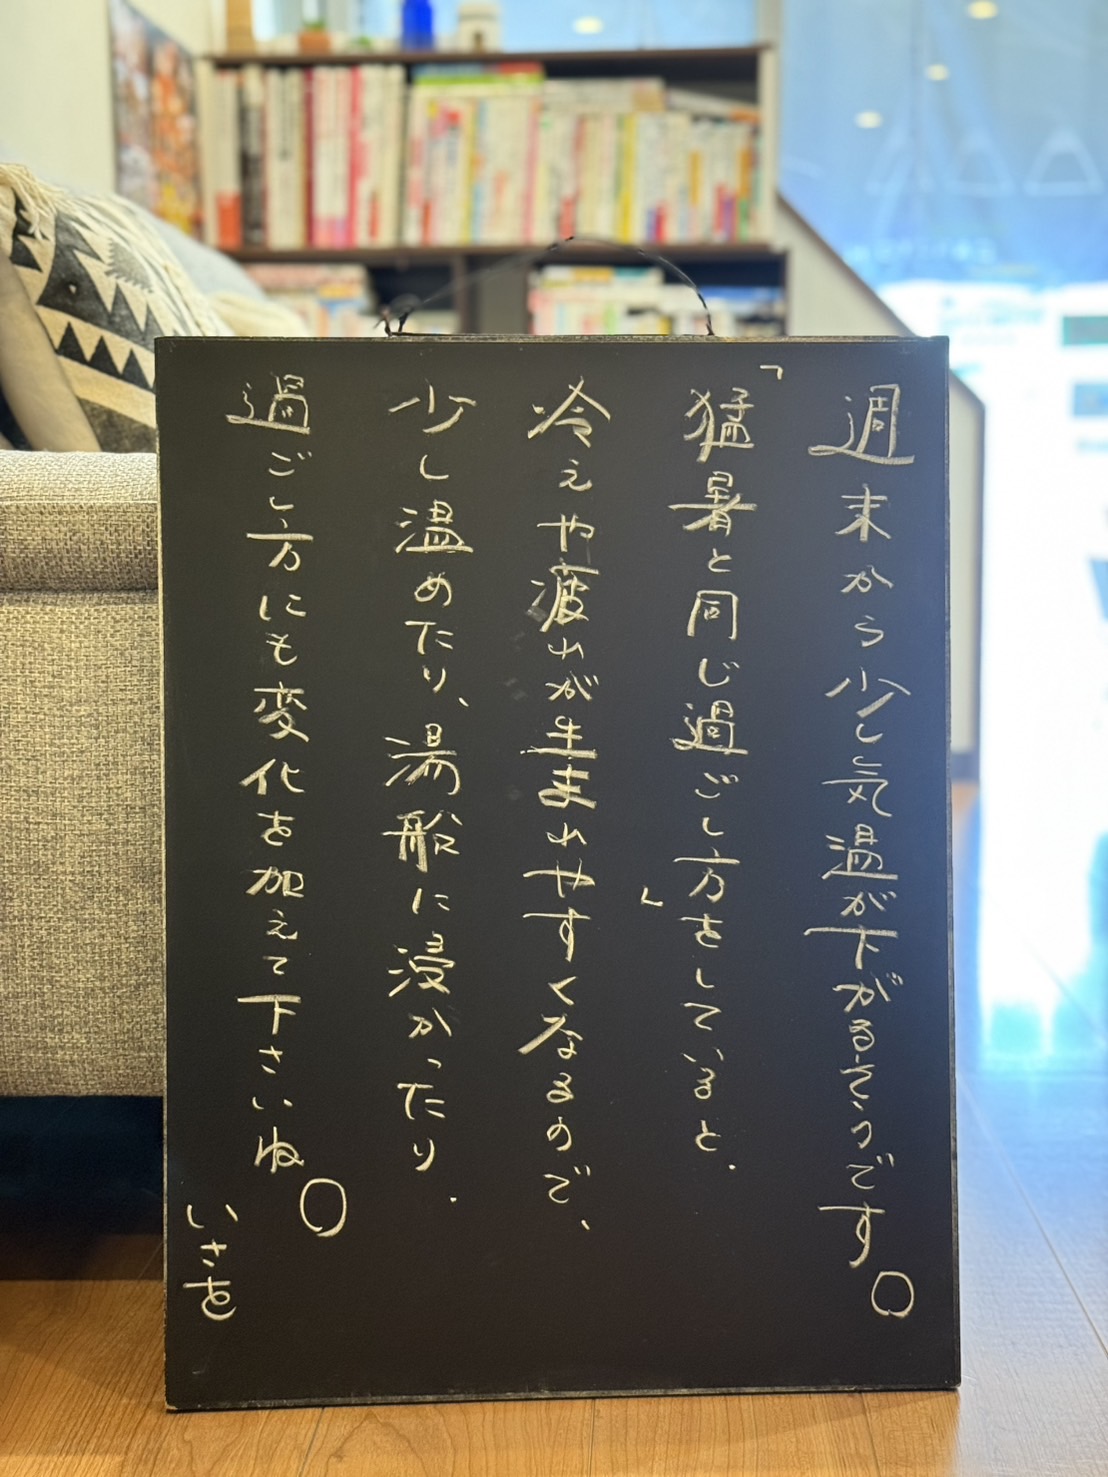 週末から少し気温が下がるそうです。
「猛暑と同じ過ごし方」をしていると、
冷えや疲れが生まれやすくなるので、
少し温めたり、湯船に浸かったり、
過ごし方にも変化を加えて下さいね。
いさを